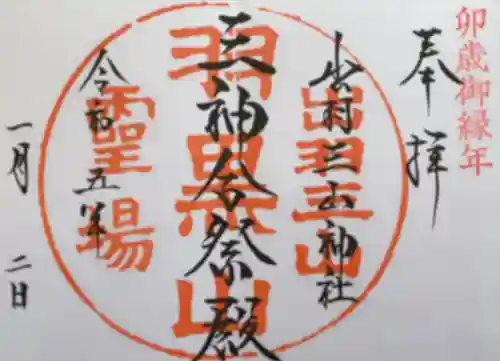 卯歳御縁年
奉拝
出羽三山神社
三神合祭殿
令和五年
一月二日
出羽三山
羽黒山
靈場